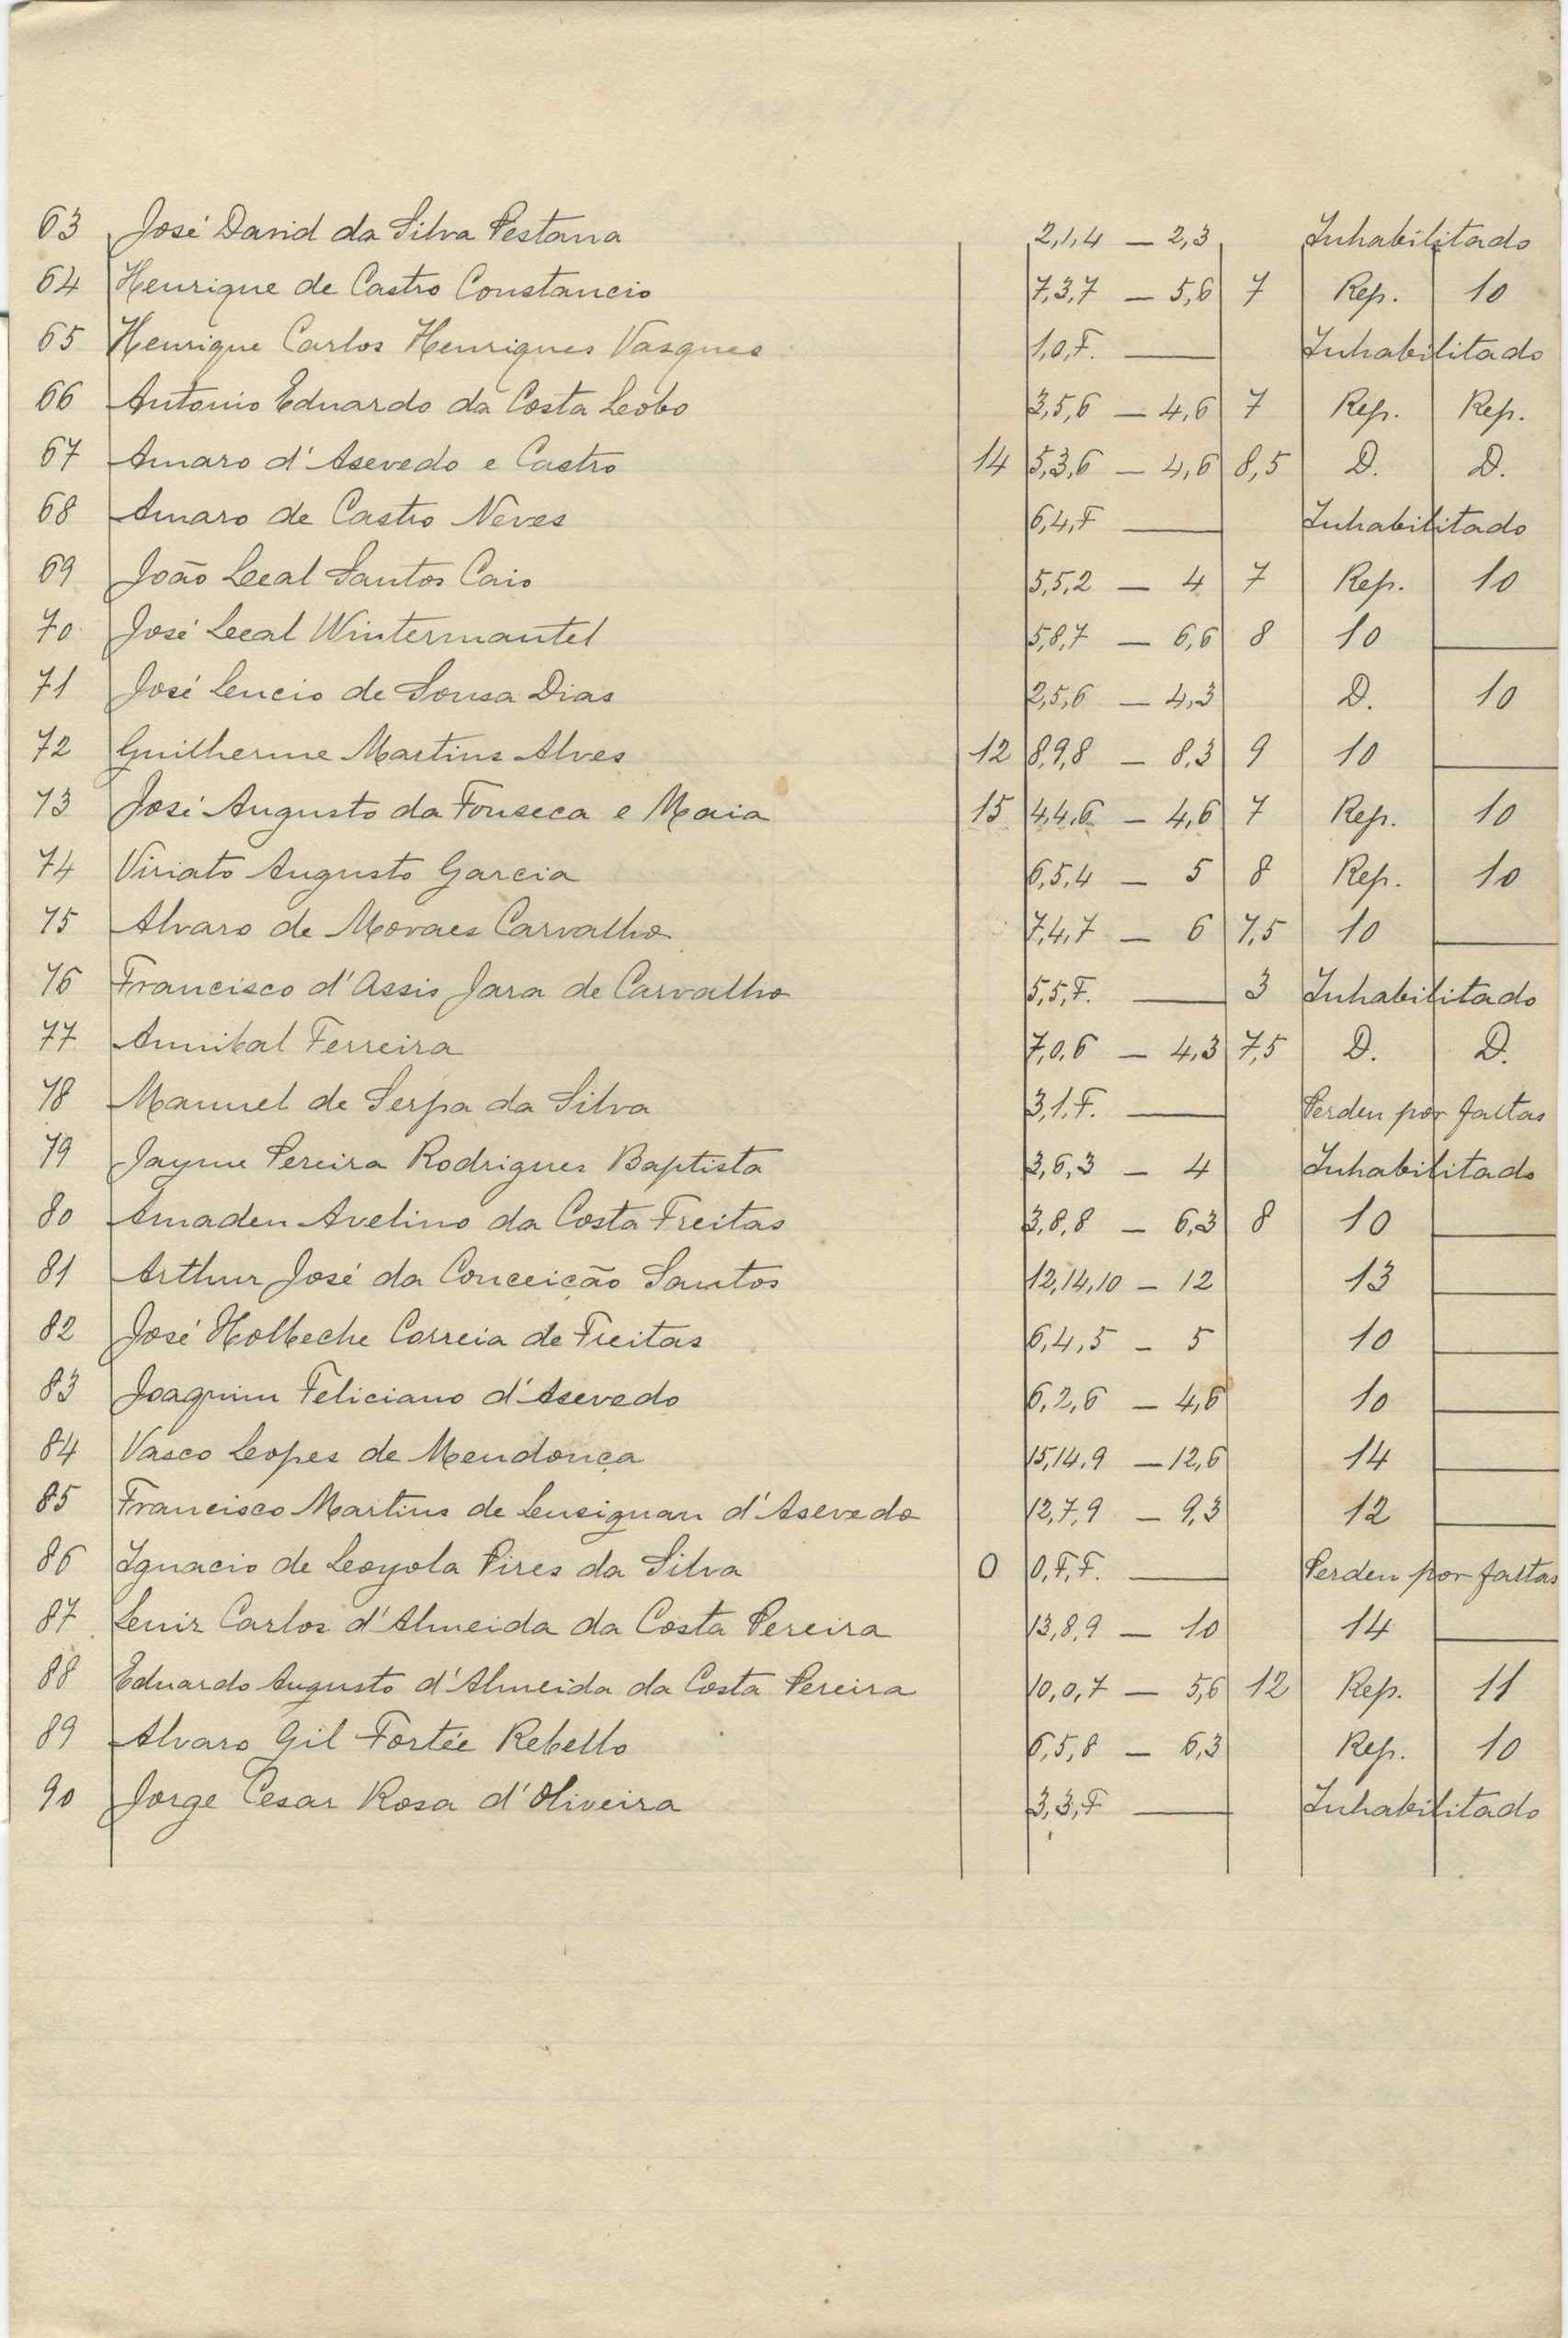 63 José David da Silva Pestana 2,1,4 — 2,3 Inhabilitado
64 Henrique de Castro Constancio 7,3,7 — 5,6 7 Rep. 10
65 Henrique Carlos Henriques Vasques 1,0,F. — Inhabilitado
66 Antonio Eduardo da Costa Lobo 3,5,6 — 4,6 7 Rep. Rep.
67 Amaro d'Asevedo e Castro 14 5,3,6 — 4,6 8,5 D. D.
68 Amaro de Castro Neves 6,4,F — Inhabilitado
69 João Leal Santos Caio 5,5,2 — 4 7 Rep. 10
70 José Leal Wintermantel 5,8,7 — 6,6 8 10 —
71 José Lucio de Sousa Dias 2,5,6 — 4,3 D. 10
72 Guilherme Martins Alves 12 8,9,8 — 8,3 9 10 —
73 José Augusto da Fonseca e Maia 15 4,4,6 — 4,6 7 Rep. 10
74 Viriato Augusto Garcia 6,5,4 — 5 8 Rep. 10
75 Alvaro de Moraes Carvalho 7,4,7 — 6 7,5 10 —
76 Francisco d'Assis Jara de Carvalho 5,5,F. — 3 Inhabilitado
77 Annibal Ferreira 7,0,6 — 4,3 7,5 D. D.
78 Manuel de Serpa da Silva 3,1,F. — Perdeu por faltas
79 Jayme Pereira Rodrigues Baptista 3,6,3 — 4 Inhabilitado
80 Amadeu Avelino da Costa Freitas 3,8,8 — 6,3 8 10 —
81 Arthur José da Conceição Santos 12,14,10 — 12 13 —
82 José Holbeche Correia de Freitas 6,4,5 — 5 10 —
83 Joaquim Feliciano d'Asevedo 6,2,6 — 4,6 10 —
84 Vasco Lopes de Mendonça 15,14,9 — 12,6 14 —
85 Francisco Martins de Lusignan d'Asevedo 12,7,9 — 9,3 12 —
86 Ignacio de Loyola Pires da Silva 0 0,F,F. — Perdeu por faltas
87 Luiz Carlos d'Almeida da Costa Pereira 13,8,9 — 10 14 —
88 Eduardo Augusto d'Almeida da Costa Pereira 10,0,7 — 5,6 12 Rep. 11
89 Alvaro Gil Fortée Rebello 6,5,8 — 6,3 Rep. 10
90 Jorge Cesar Rosa d'Oliveira 3,3,F — Inhabilitado